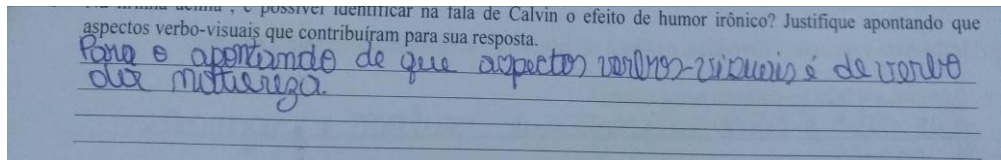 é possível identificar na fala de Calvin o efeito de humor irônico? Justifique apontando que
aspectos verbo-visuais que contribuíram para sua resposta.
Para o apontando de que aspectos verbos-visuais é de verbo
da natureza.